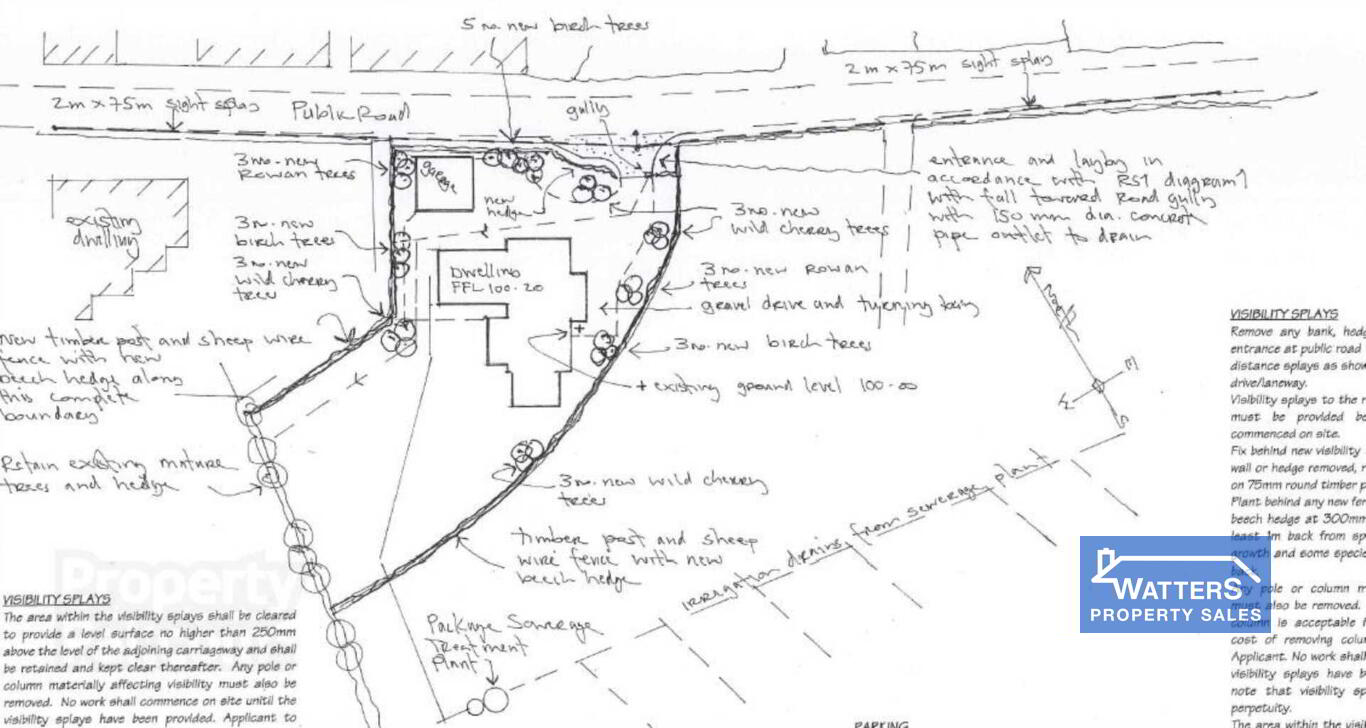 5 no. new birch trees
2m x 75m sight splay
2m x 75m sight splay
Public Road
gully
3 no. new
Rowan trees
garage
new
hedge
3 no. new
wild cherry trees
entrance and layby in
accordance with RS1 diagram 1
with fall toward Road gully
with 150 mm dia. concrete
pipe outlet to drain
existing
dwelling
3 no. new
birch trees
3 no. new
wild cherry
trees
Dwelling
FFL 100.20
3 no. new Rowan
trees
gravel drive and turning bay
North
E
S
New timber post and sheep wire
fence with new
beech hedge along
this complete
boundary
3 no. new birch trees
+ existing ground level 100.00
Retain existing mature
trees and hedge
3 no. new wild cherry
trees
timber post and sheep
wire fence with new
beech hedge
Irrigation drains from sewerage plant
Package Sewerage
Treatment
Plant
Property
VISIBILITY SPLAYS
The area within the visibility splays shall be cleared
to provide a level surface no higher than 250mm
above the level of the adjoining carriageway and shall
be retained and kept clear thereafter. Any pole or
column materially affecting visibility must also be
removed. No work shall commence on site unitil the
visibility splays have been provided. Applicant to
PARKING
VISIBILITY SPLAYS
Remove any bank, hedg
entrance at public road
distance splays as show
drive/laneway.
Visibility splays to the r
must be provided be
commenced on site.
Fix behind new visibility
wall or hedge removed, r
on 75mm round timber p
Plant behind any new fer
beech hedge at 300mm
least 1m back from sp
growth and some specie
back.
Any pole or column m
must also be removed.
column is acceptable
cost of removing colu
Applicant. No work shall
visibility splays have b
note that visibility sp
perpetuity.
The area within the visi
WATTERS
PROPERTY SALES